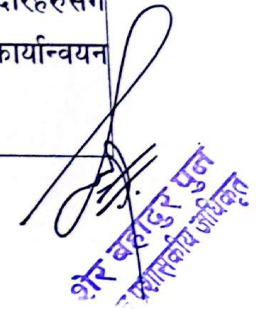 कार्यान्वयन
शेर बहादुर पुन
प्रशासकीय अधिकृत